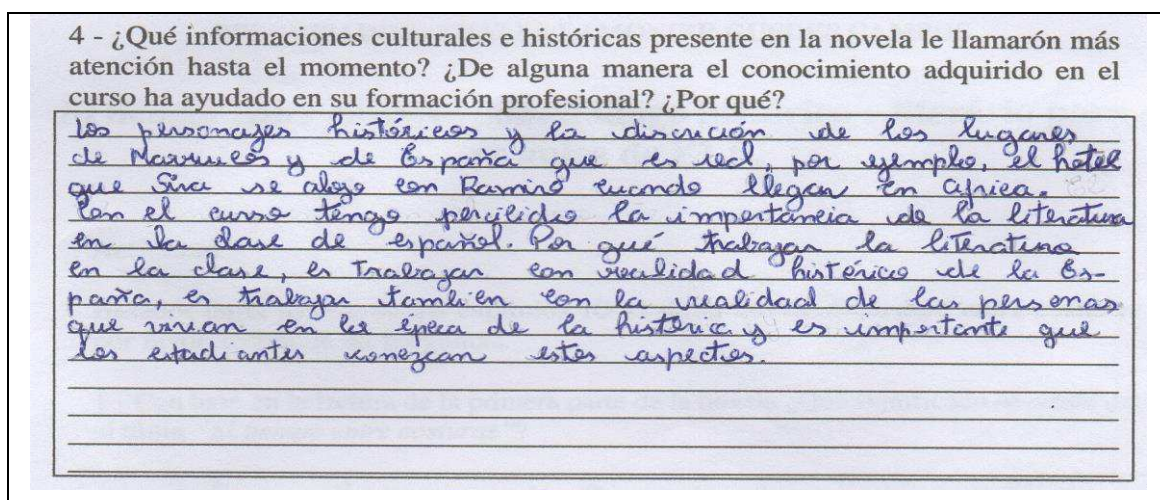 4 - ¿Qué informaciones culturales e históricas presente en la novela le llamarón más
atención hasta el momento? ¿De alguna manera el conocimiento adquirido en el
curso ha ayudado en su formación profesional? ¿Por qué?
los personajes históricos y la discrición de los lugares
de Marruecos y de España que es real, por ejemplo, el hotel
que Sira se alojo con Ramiro cuando llegan en africa.
Con el curso tengo percibido la importáncia de la literatura
en la clase de español. Por qué trabajar la literatura
en la clase, es trabajar con realidad histórica de la Es-
paña, es trabajar tambien con la realidad de las personas
que vivian en la época de la historia y es importante que
los estudiantes conozcan estos aspectos.